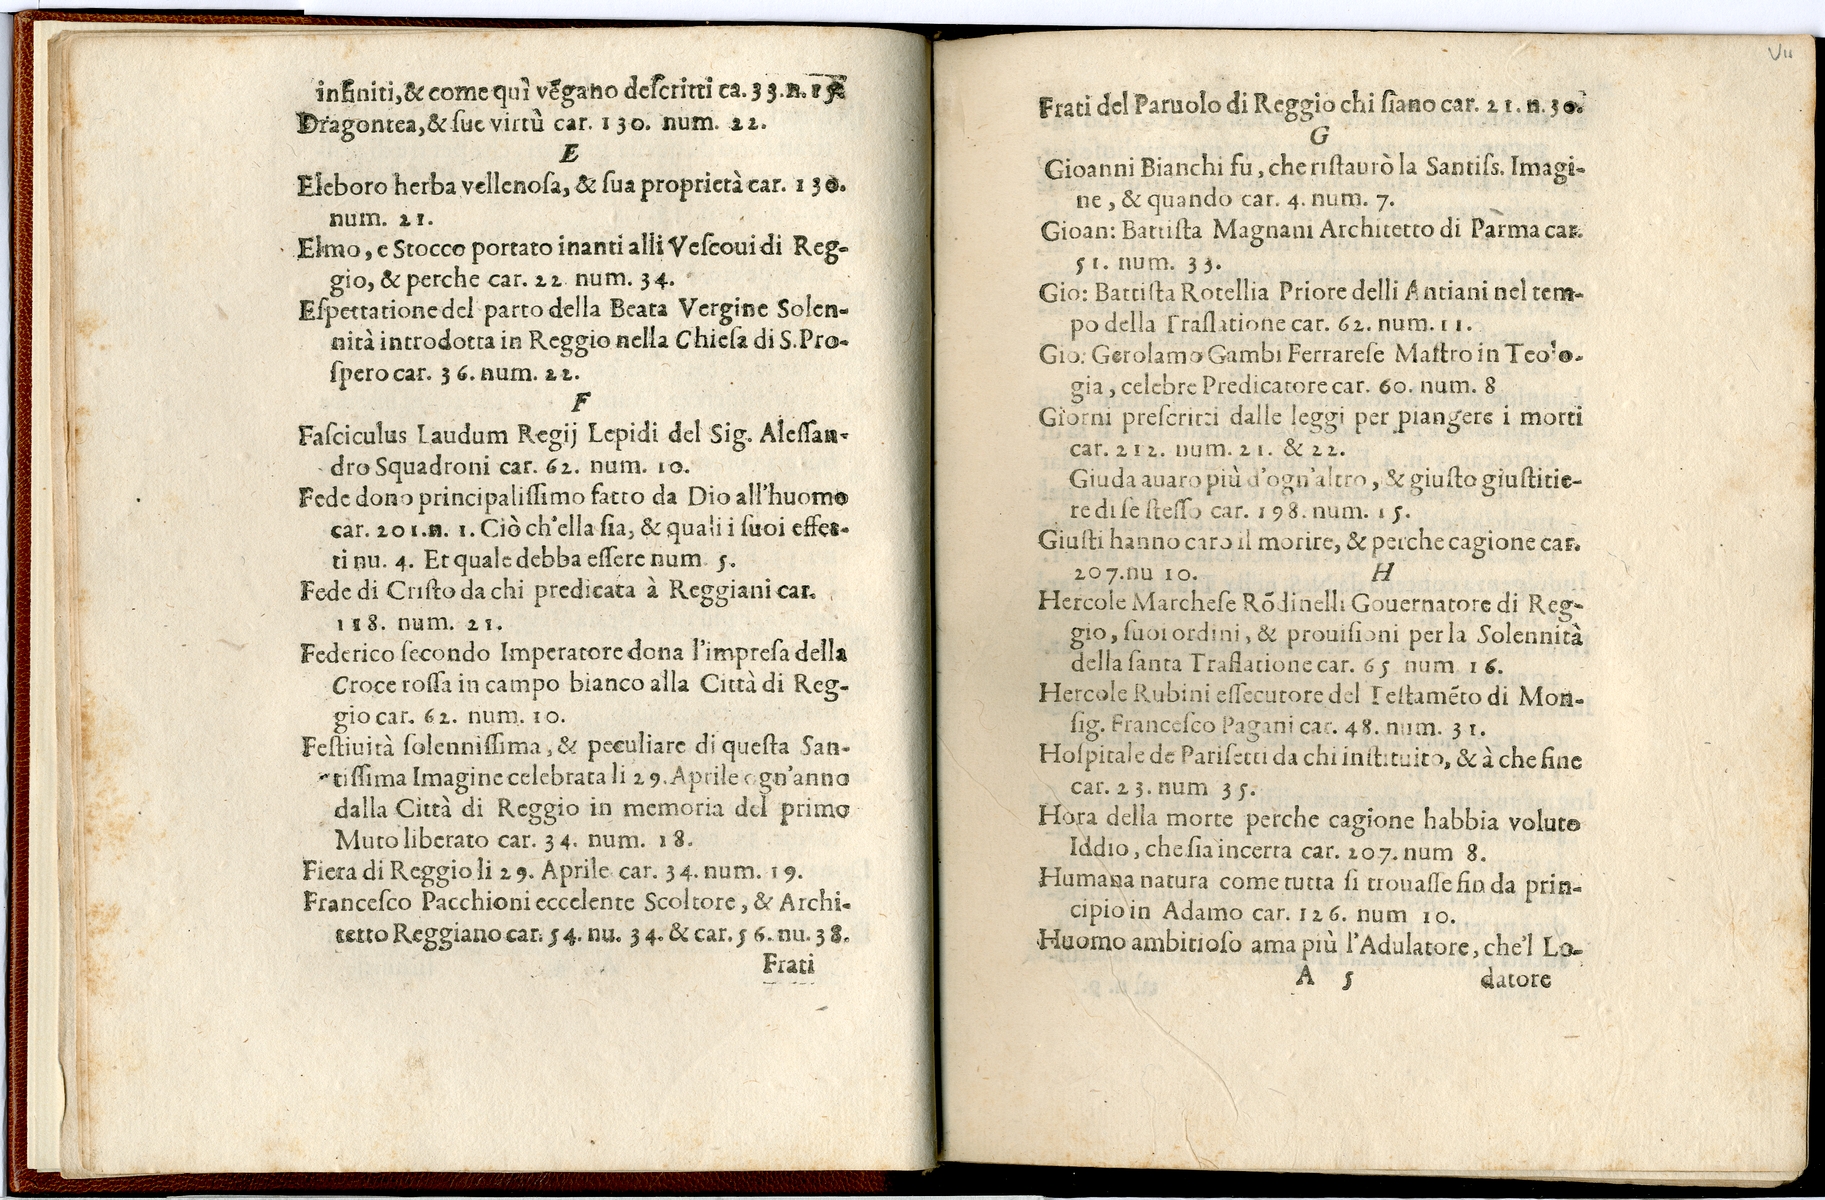 infiniti, & come quì vẽgano deſcritti ca. 33. n. 15
Dragontea, & ſue virtù car. 130. num. 22.
E
Eleboro herba vellenoſa, & ſua proprietà car. 130.
num. 21.
Elmo, e Stocco portato inanti alli Veſcoui di Reg-
gio, & perche car. 22 num. 34.
Eſpettatione del parto della Beata Vergine Solen-
nità introdotta in Reggio nella Chieſa di S. Pro-
ſpero car. 36. num. 22.
F
Faſciculus Laudum Regij Lepidi del Sig. Aleſſan-
dro Squadroni car. 62. num. 10.
Fede dono principaliſſimo fatto da Dio all'huomo
car. 201. n. 1. Ciò ch'ella ſia, & quali i ſuoi effet-
ti nu. 4. Et quale debba eſſere num. 5.
Fede di Criſto da chi predicata à Reggiani car.
118. num. 21.
Federico ſecondo Imperatore dona l'impreſa della
Croce roſſa in campo bianco alla Città di Reg-
gio car. 62. num. 10.
Feſtiuità ſolenniſſima, & peculiare di queſta San-
tiſſima Imagine celebrata li 29. Aprile ogn'anno
dalla Città di Reggio in memoria del primo
Muto liberato car. 34. num. 18.
Fiera di Reggio li 29. Aprile car. 34. num. 19.
Franceſco Pacchioni eccelente Scoltore, & Archi-
tetto Reggiano car. 54. nu. 34. & car. 56. nu. 38.
Frati
VII
Frati del Paruolo di Reggio chi ſiano car. 21. n. 30.
G
Gioanni Bianchi fu, che riſtaurò la Santiſs. Imagi-
ne, & quando car. 4. num. 7.
Gioan: Battiſta Magnani Architetto di Parma car.
51. num. 33.
Gio: Battiſta Rotellia Priore delli Antiani nel tem-
po della Traſlatione car. 62. num. 11.
Gio: Gerolamo Gambi Ferrareſe Maſtro in Teolo-
gia, celebre Predicatore car. 60. num. 8
Giorni preſcritti dalle leggi per piangere i morti
car. 212. num. 21. & 22.
Giuda auaro più d'ogn'altro, & giuſto giuſtitie-
re di ſe ſteſſo car. 198. num. 15.
Giuſti hanno caro il morire, & perche cagione car.
207. nu 10.
H
Hercole Marcheſe Rõdinelli Gouernatore di Reg-
gio, ſuoi ordini, & prouiſioni per la Solennità
della ſanta Traſlatione car. 65 num 16.
Hercole Rubini eſſecutore del Teſtamẽto di Mon-
ſig. Franceſco Pagani car. 48. num. 31.
Hoſpitale de Pariſetti da chi inſtituito, & à che fine
car. 23. num 35.
Hora della morte perche cagione habbia voluto
Iddio, che ſia incerta car. 207. num 8.
Humana natura come tutta ſi trouaſſe fin da prin-
cipio in Adamo car. 126. num 10.
Huomo ambitioſo ama più l'Adulatore, che'l Lo-
A 5 datore